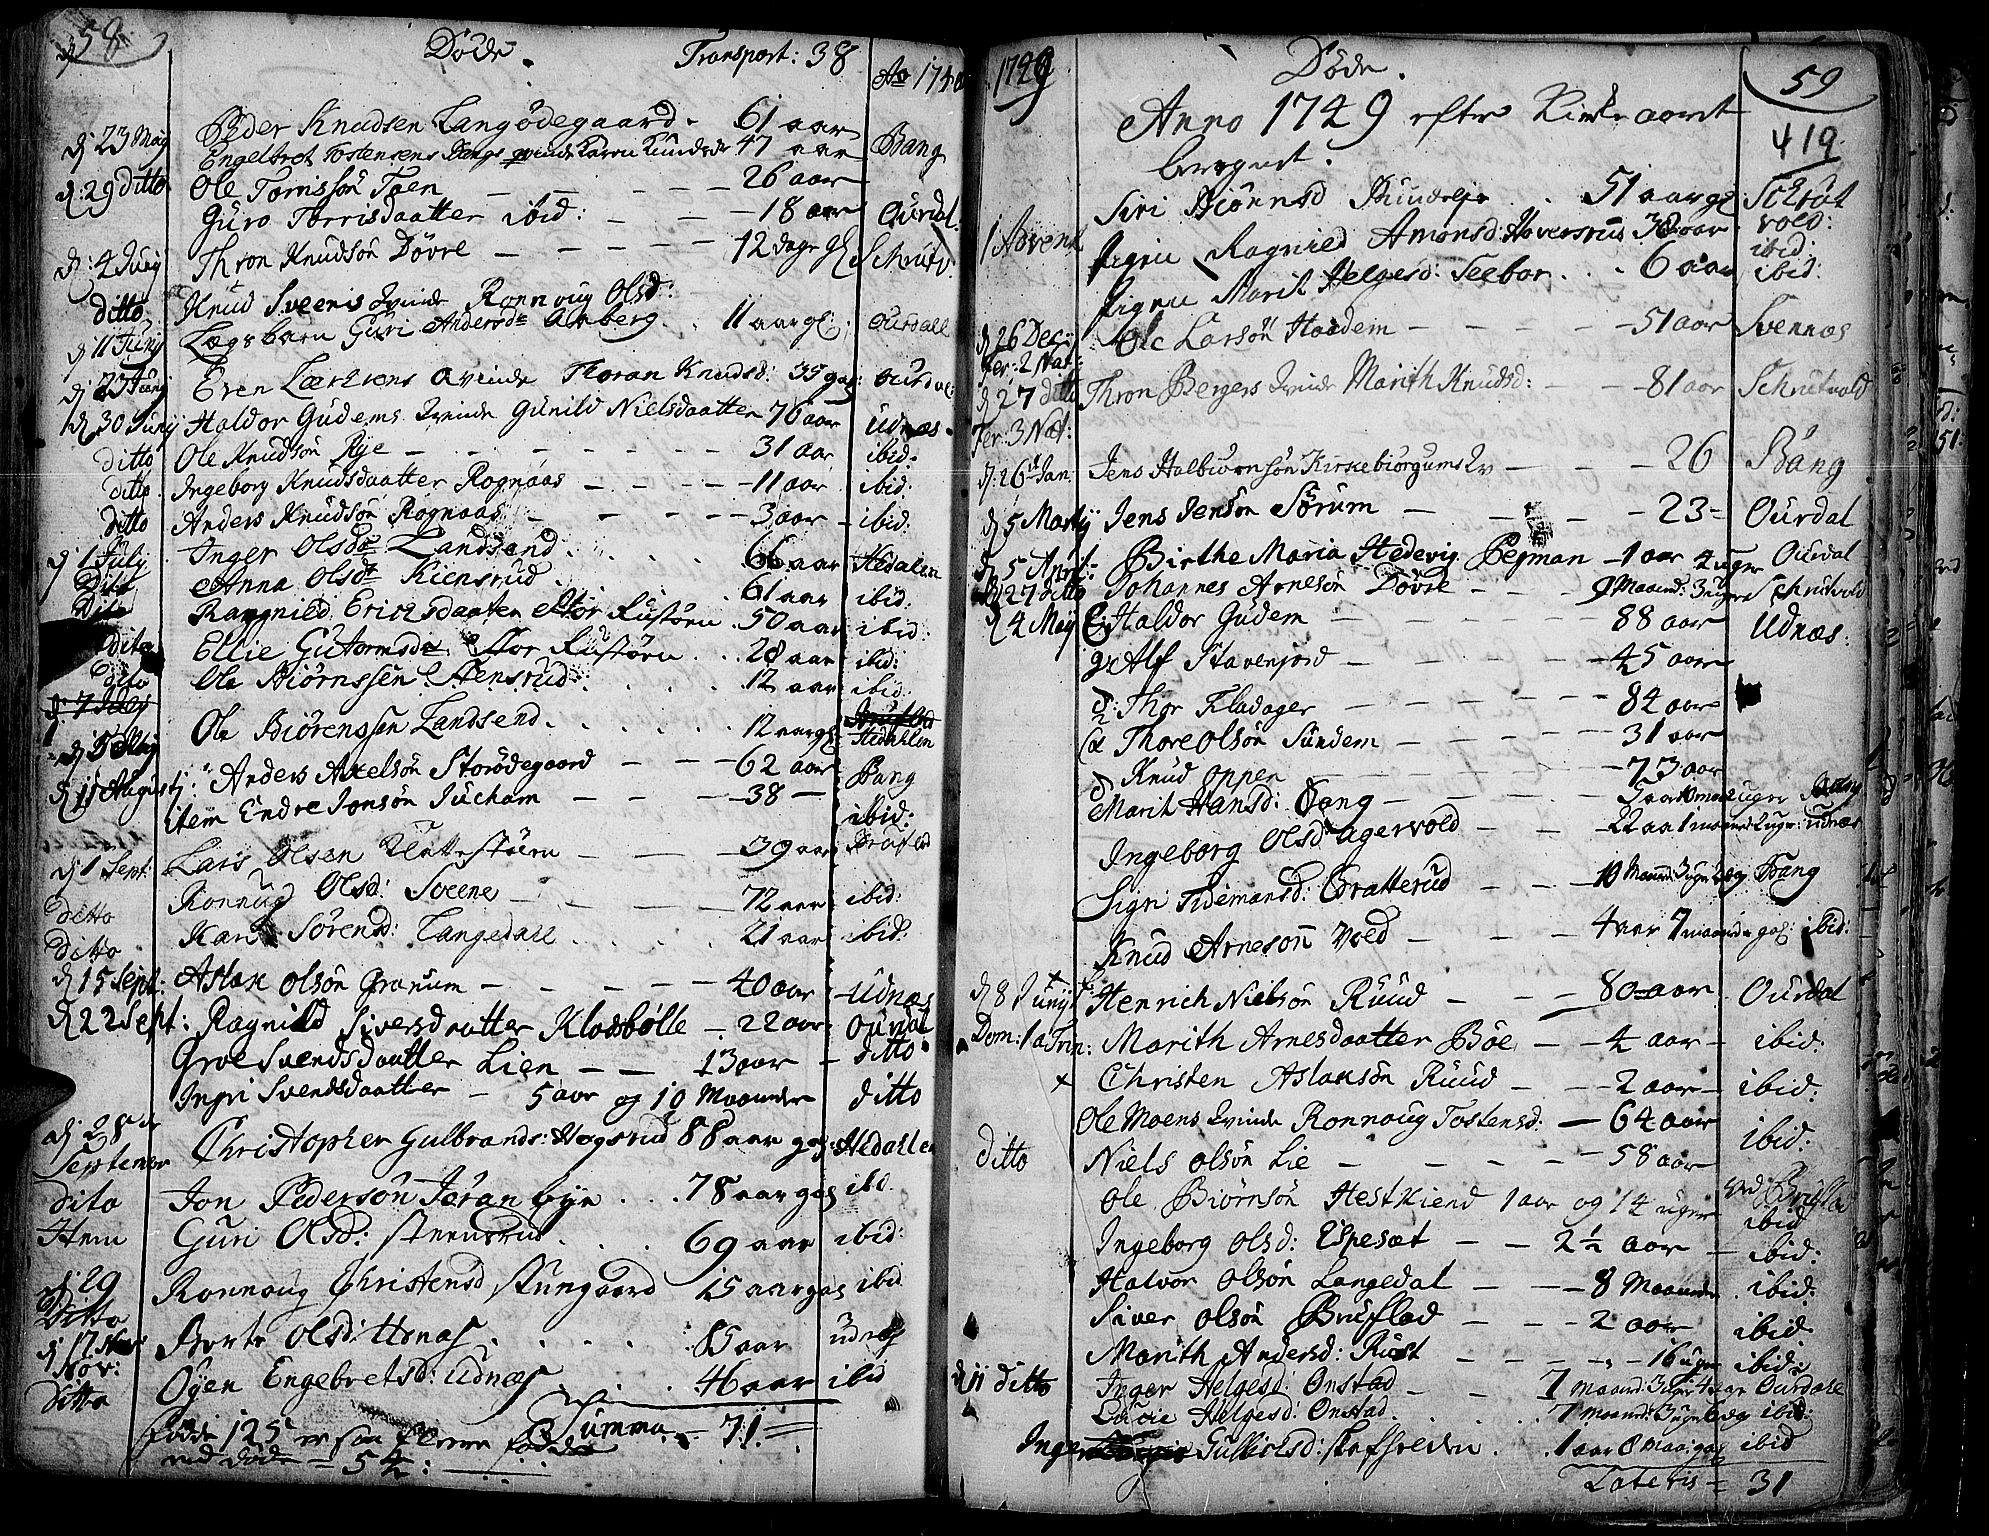 58
Døde. Transport: 38 Ao 174
dj 23 Maij Peder Knudsen Langødegaard. 61 aar
Engelbret Tostensens Bangs qvinde Karen Knudsdr 47 aar Bang
dj: 29 ditto Ole Torrissøn Toen — — — 26 aar
Guro Torrisdaatter ibid: — — — 18 aar Ourdal.
dj: 4 Junij Thron Knudsøn Døvre — — — 12 dage gl Schrutv
ditto Knud Sveenis Qvinde Ronnoug Olsd:
dj 11 Junij Lægsbarn Guri Andersdr Aaberg. . 11 aar gl: Ourdall
dj 23 Junij Even Lærkens qvinde Thoran Knudsd: 35 gl: Ourdal
dj. 30 Junij Haldor Gudems Qvinde Gunild Nielsdaatter 76 aar Udnæs.
ditto Ole Knudsøn Rye — — — 31 aar ibid:
ditto. Ingeborg Knudsdaatter Rognaas — — — 11 aar ibid:
ditto Anders Knudsøn Rognaas — — — 3 aar — ibid:
dj 1 July Inger Olsdr Landsend . . . 66 aar Hedalen
Dito Anna Olsdr Kiensrud . . . 61 aar ibid:
Dito Rangnild Erichsdaatter Stor Rustøen . 50 aar ibid:
dito Ellie Gutormsdr Stor Rustøen . . 28 aar ibid:
Dito Ole Biørnssen Stensrud . . . 12 aar ibid:
dj. 7 July Ole Biørenssen Landsend . . . 12 aar gl Hedahlen
dj 11 Augustj: Anders Axelsøn Storødegaard — — 62 aar Bang
item Endre Jonsøn Jueham — — — 38 — ibid:
dj 1 Sept: Lars Olsen Klettestøien — — — 39 aar Bruflad
ditto Ronnug Olsd: Sveene — — — 72 aar ibid:
ditto Kari Sørensd: Langedall . . . 21 aar ibid:
dj 15 Sept: Aslak Olsøn Granum — — — 40 aar Udnæs
dj 22 Sept: Ragnild Siversdaatter Klosbølle — 22 aar: Ourdal
Groe Svendsdaatter Lien — — 13 aar — ditto
Ingri Svendsdaatter — 5 aar og 10 Maaneder ditto
dj 28de September Christopher Gulbrands: Høgsrud 88 aar gl: Hedallen
dito Jon Pedersøn Jøranbye . . . 78 aar gl ibd.
Item Guri Olsd: Steensrud . . . 69 aar ibid:
dj 29 Ditto Ronnoug Christensd Stungaard 15 aar gl ibid
dj 17 Nov: Berte Olsd: Hønas . . . 85 aar udnæs
Ditto Oyen Engebretsd: udnæs . . . 46 aar ibid
Summa. 71
føde 125 er saa fleere fødde
end døde = 54:
1749
Døde.
59
419
Anno 1749 efter Kirke aaret
beregnet.
1 Advent Siri Biønnsd . . 51 aar gl Schrutvold:
Pigen Ragnild Amonsd: Haversrud 30 aar ibid:
Pigen Marit Helgesd: Seebor . . . 6 aar ibid:
dj 26 Dec: Fer: 2 Nat: Ole Larsøn Haadem — — — 51 aar Svennes
dj 27 ditto Fer: 3 Nat: Thron Bergers Qvinde Marith Knudsd: — — 81 aar Schrutvold
dj: 26 Jan: Jens Halbiørnsøn Kirkebiørgums Qv — — 26 Bang
dj 5 Martij Jens Jensøn Sørum — — — 23 — Ourdal
dj 5 April: Birthe Maria Hedevig Pegman — 1 aar 4 uger Ourdal
dj 27 ditto Johannes Arnesøn Døvre — — 9 Maaned: 3 uger Schrutvold
dj 4 Maij Haldor Gudem — — — 88 aar Udnæs.
Alf Stavenjord — — — 45 aar
Thor Fladager — — — 84 aar
Thore Olsøn Sundem — — — 31 aar
Knud Oppen — — — 73 aar
Marit Hansd: Bang — — — 5 aar 10 maa 2 uger Bang
Ingeborg Olsdr Agervold — — 22 aa 1 maaned 2 uger: udnæs
Sigri Tidemansd: Bratterud — — 10 Maaned: 3 uger Bang
Knud Arnesøn Vold — — — 4 aar 7 maaneder gl: ibid:
dj 8 Junij Dom: 1 a Trin: Henrich Nielsøn Ruud — — — 80 aar Ourdal
Marith Arnesdaatter Bøe — — 4 aar — ibid:
Christen Aslaksøn Ruud — — 2 aar — ibid:
Ole Moens Qvinde Ronnoug Tostensd: — 64 aar
ditto Niels Olsøn Lie — — — 58 aar ibid:
Ole Biørnsøn Hestkiend 1 aar og 14 uger ved Bruflad ibid
Ingeborg Olsd: Espesæt — — 2½ aar — ibid:
Halvor Olsøn Langedal — — 8 Maaneder . ibid:
Siver Olsøn Bruflad — — 2 aar — ibid:
Marith Andersd: Rust — — — 16 uger ibid:
dj 11 ditto Inger Helgesd: Onstad — — 7 Maaned: 3 uger 4 dage Ourdale
Lucie Helgesd: Onstad. . . . 7 Maaned: 3 uger 6 dag ibid:
Inger Gulliksd: Stafsveden . . 1 aar 8 maa: gl ibid
Lateris = 31